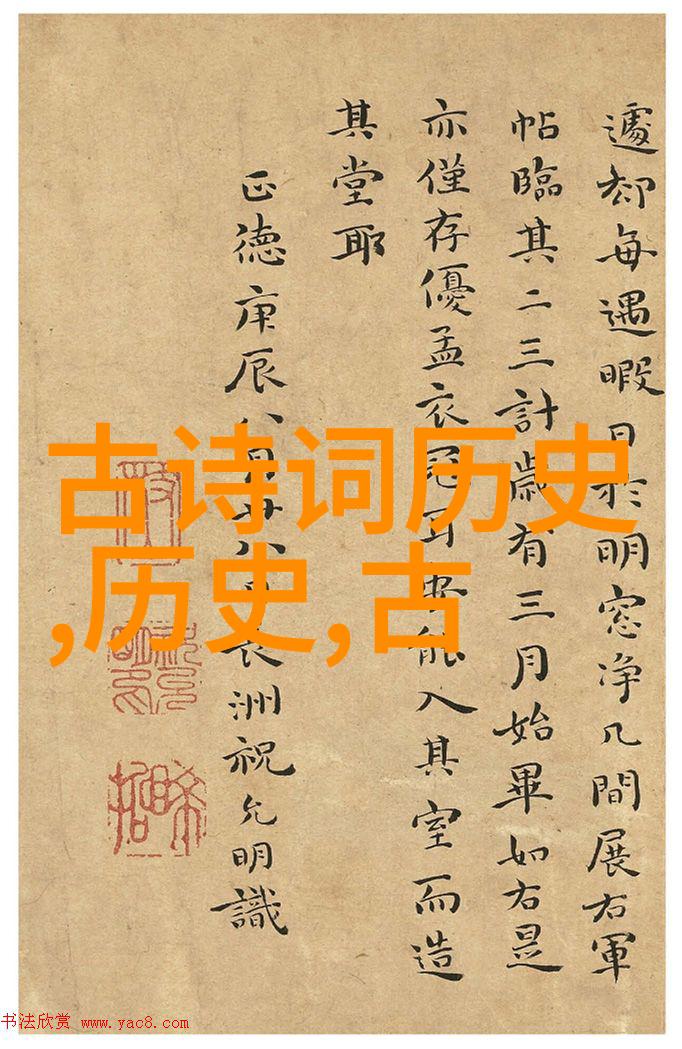 遽却每遇暇日於明窓净几間展右軍
帖臨其二三計歲有三月始畢如右是
亦僅存優孟衣冠耳安能入其室而造
其堂耶
正德庚辰八月廿八日長洲祝允明識
古诗词历史
,历史,古
书法欣赏 www.yac8.com